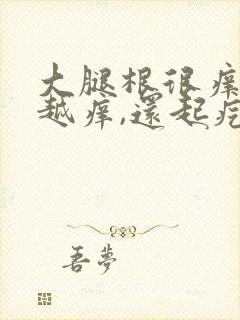 大腿根很痒
越痒,还起疙
吾梦